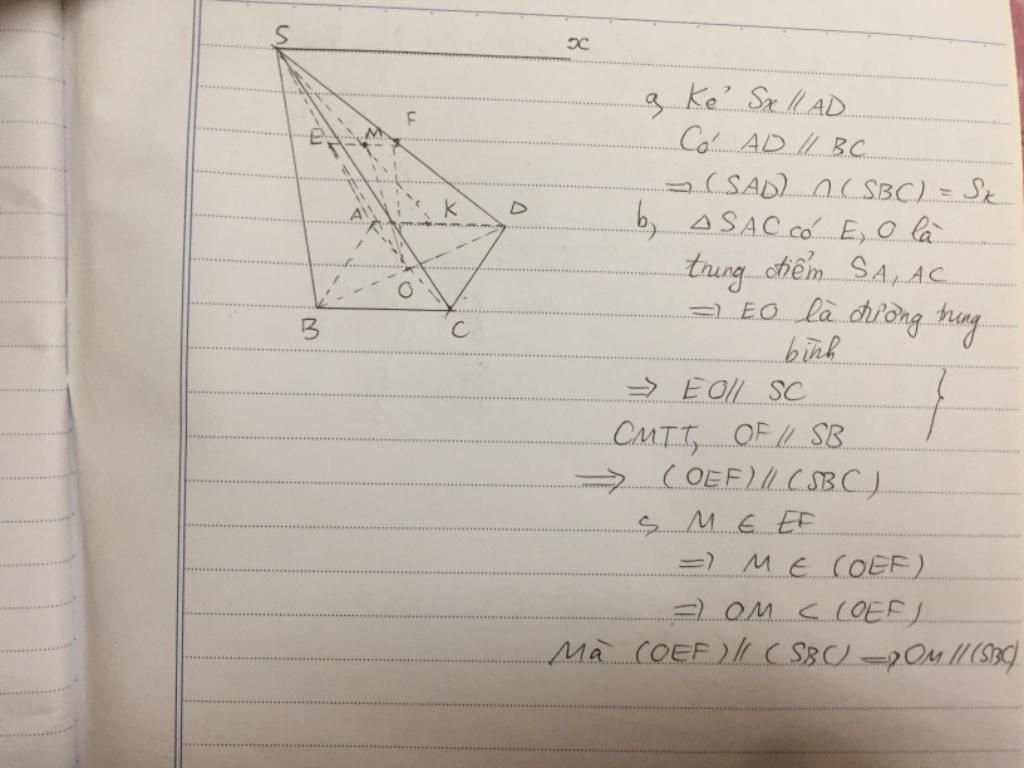 S
x
E M F
A K D
O
B C
a, Kẻ Sx // AD
Có AD // BC
=> (SAD) ∩ (SBC) = Sx
b, △SAC có E, O là
trung điểm SA, AC
=> EO là đường trung
bình
=> EO // SC }
CMTT, OF // SB
=> (OEF) // (SBC)
c, M ∈ EF
=> M ∈ (OEF)
=> OM < (OEF)
Mà (OEF) // (SBC) => OM // (SBC)